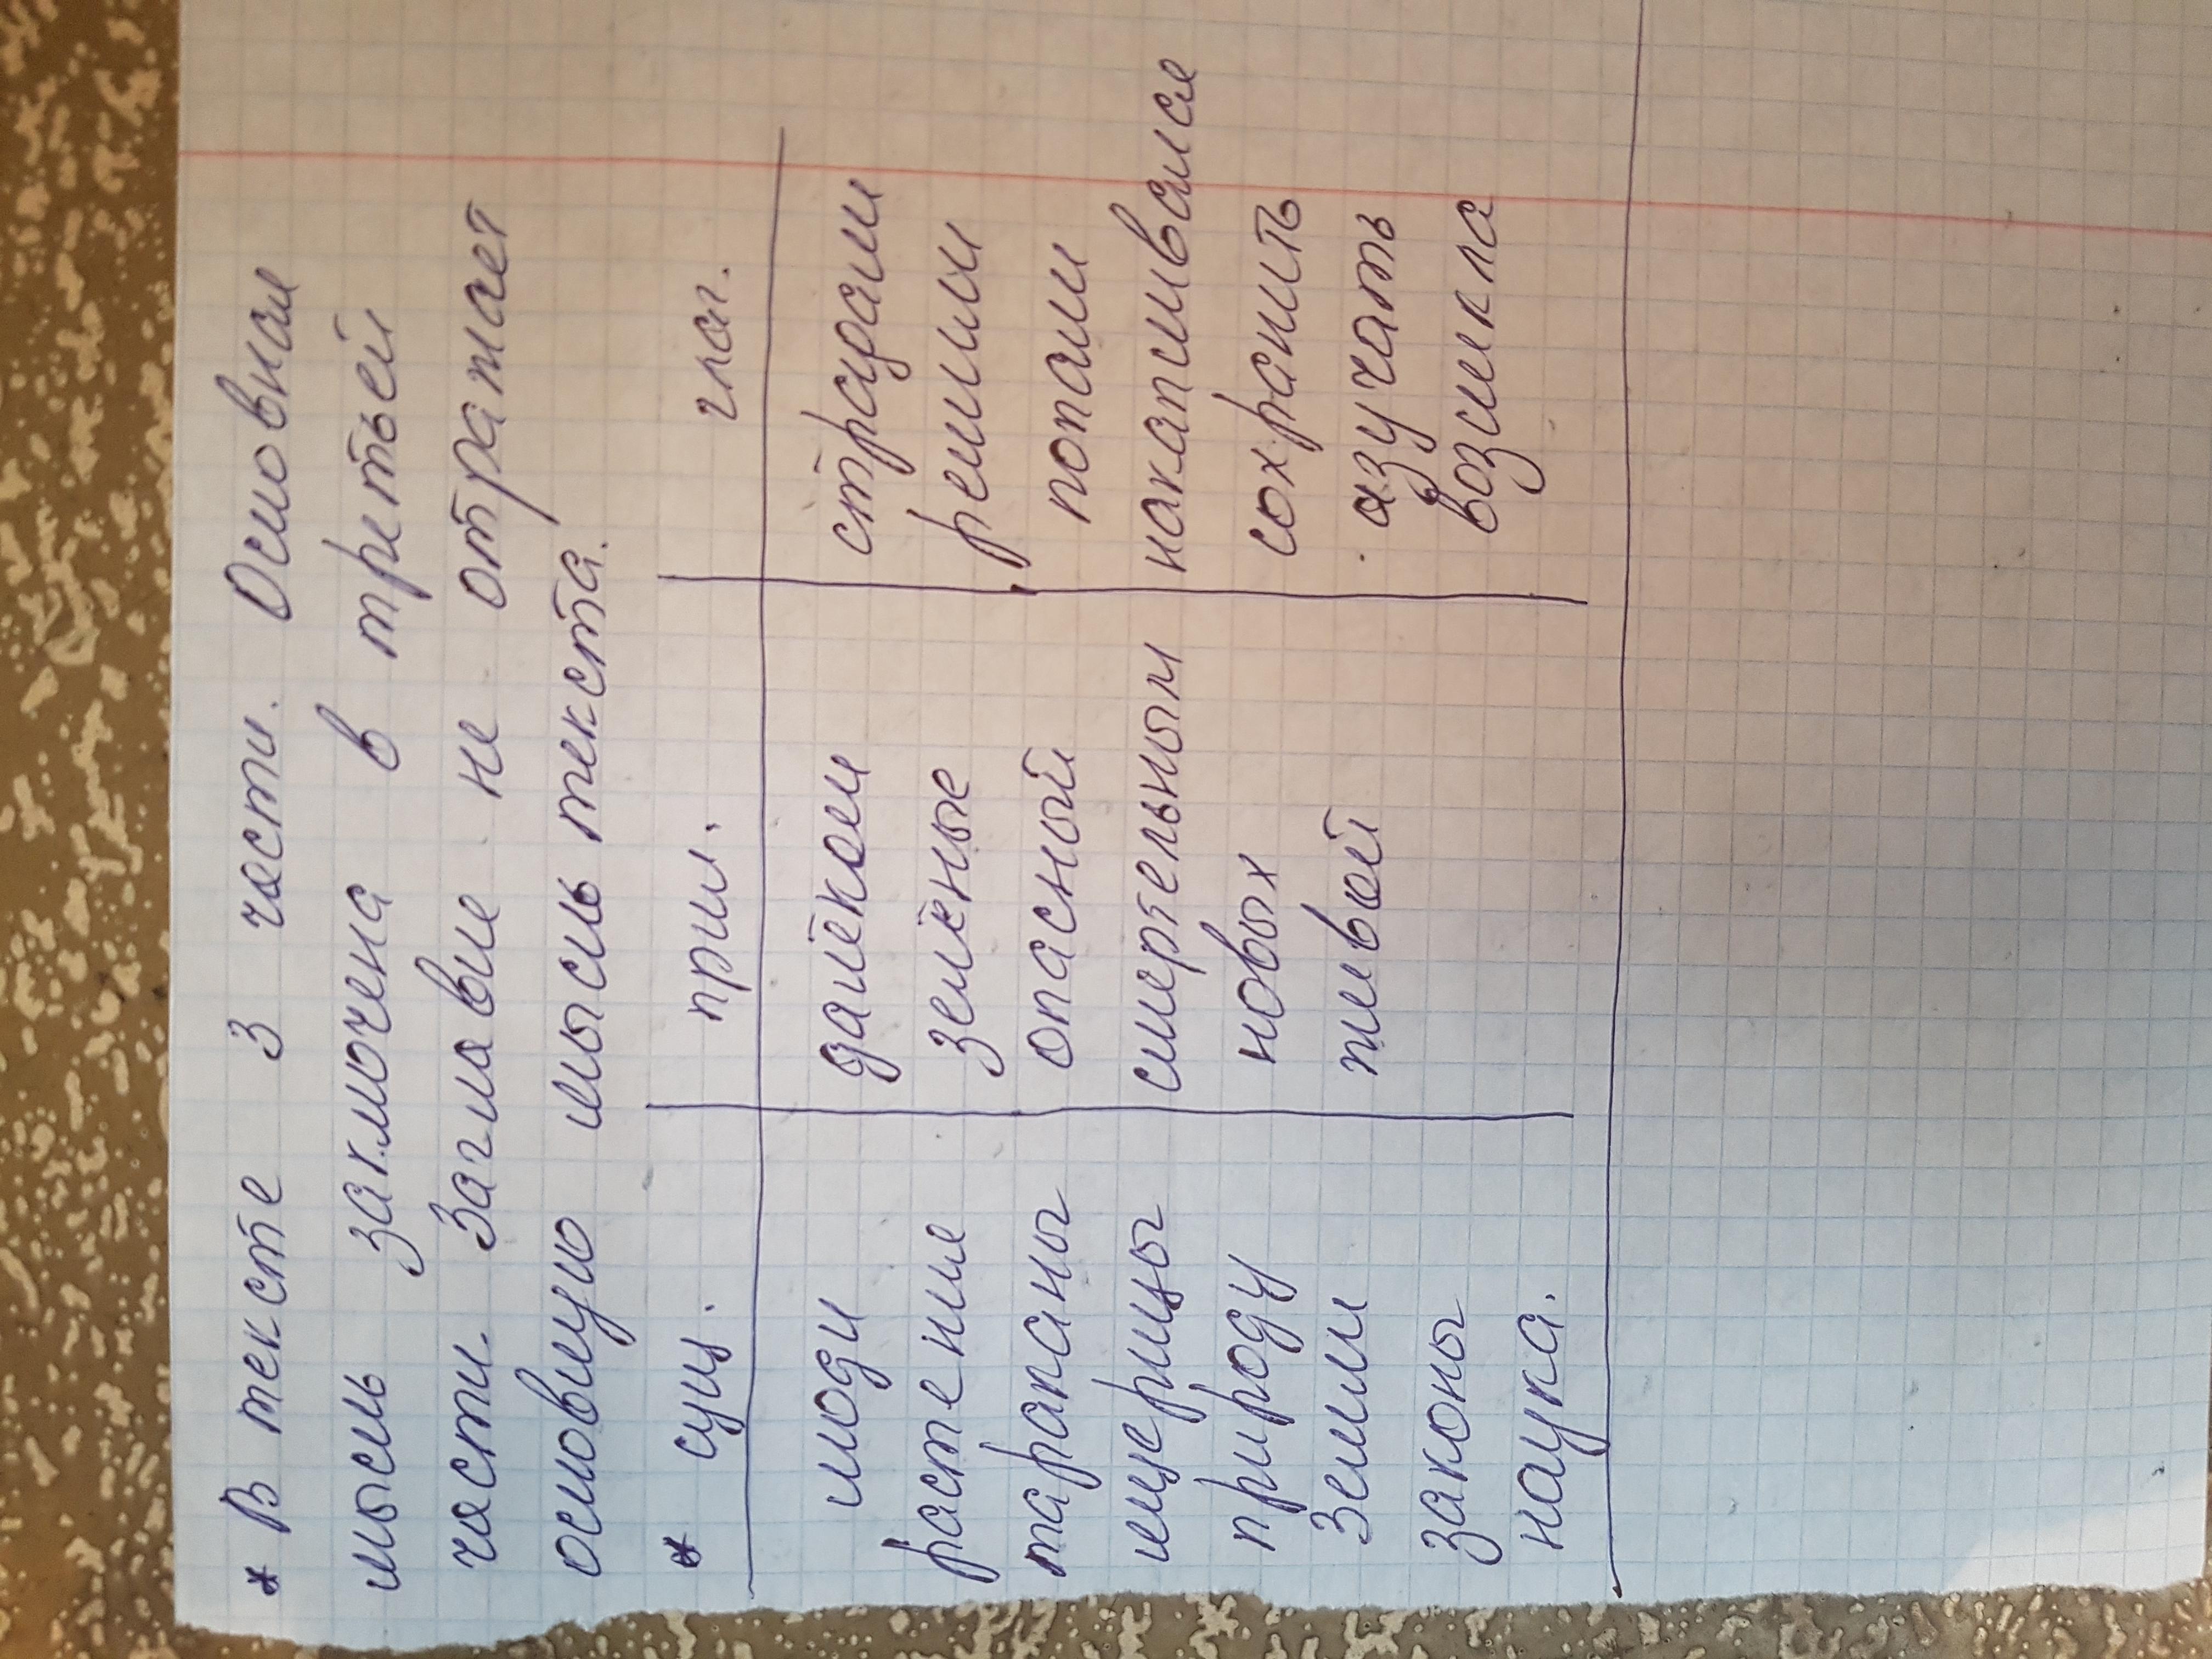 * В тексте 3 части. Основная
мысль заключена в третьей
части. Заглавие не отражает
основную мысль текста.
* сущ. прил. глаг.
люди далёком страдали
растение зелёные решили
тараканы опасной попали
ящерицы смертельным накапливался
природу новых сохранить
Земли живой изучать
законы возникла
наука.